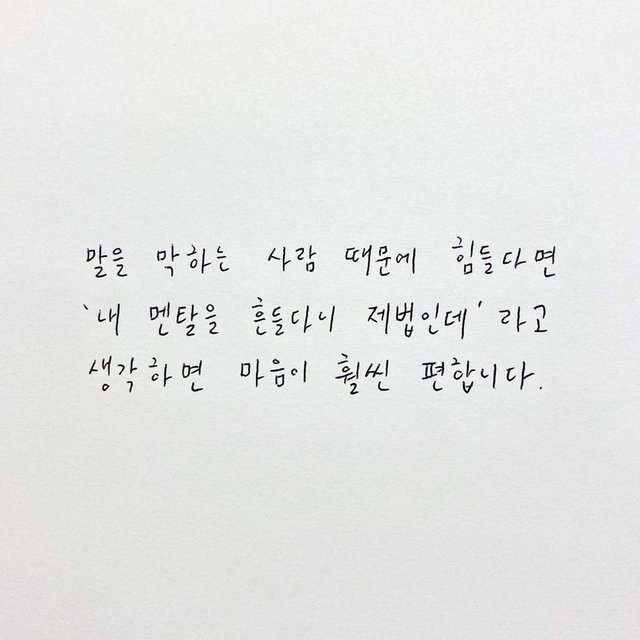 말을 막하는 사람 때문에 힘들다면
'내 멘탈을 흔들다니 제법인데' 라고
생각하면 마음이 훨씬 편합니다.